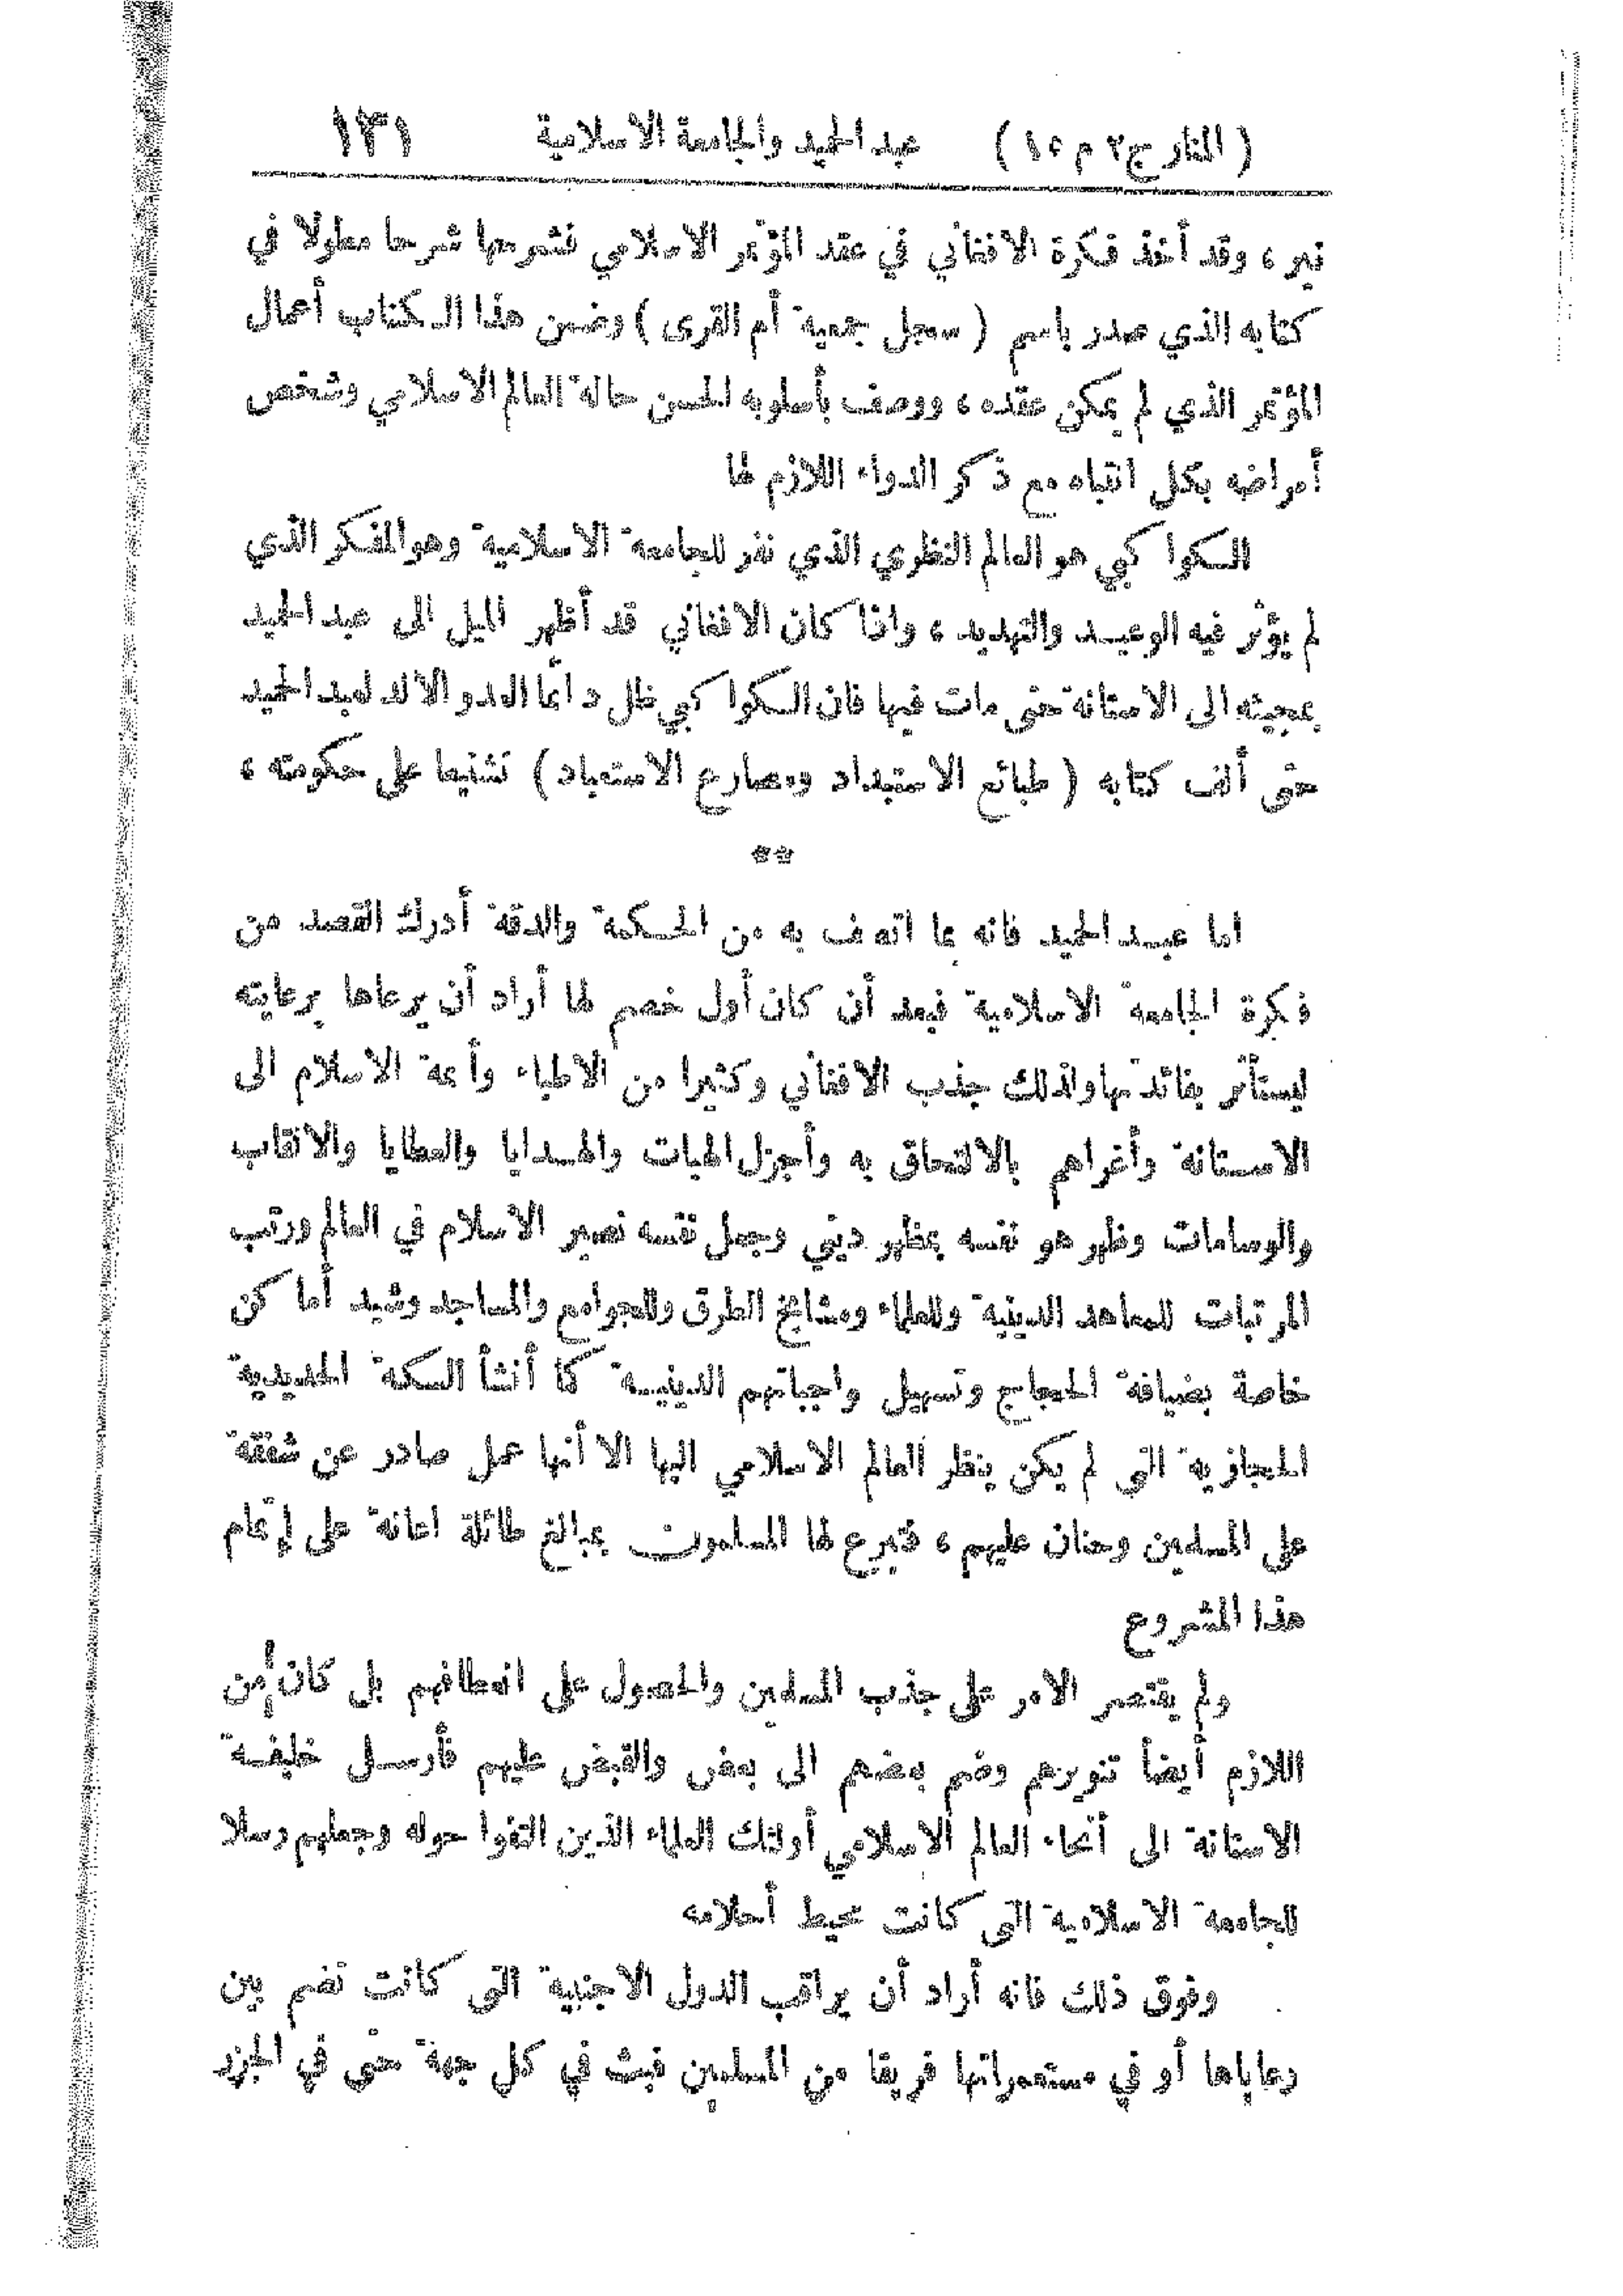 ( المنار ج ٢ م ١٥ ) عبد الحميد والجامعة الاسلامية ١٣١
نير ، وقد أخذ فكرة الافغاني في عقد المؤتمر الاسلامي فشرحها شرحا مطولا في
كتابه الذي صدر باسم ( سجل جمعية أم القرى ) وضمن هذا الكتاب أعمال
المؤتمر الذي لم يمكن عقده ، ووصف بأسلوبه الحسن حالة العالم الاسلامي وشخص
أمراضه بكل انتباه مع ذكر الدواء اللازم لها
الكواكبي هو العالم النظري الذي نذر للجامعة الاسلامية وهو المفكر الذي
لم يؤثر فيه الوعيد والتهديد ، واذا كان الافغاني قد أظهر الميل الى عبد الحميد
بمجيئه الى الاستانة حتى مات فيها فان الكواكبي ظل دائما العدو الالد لعبد الحميد
حتى ألف كتابه ( طبائع الاستبداد ومصارع الاستعباد ) تشنيعا على حكومته ،
**
اما عبد الحميد فانه بما اتصف به من الحكمة والدقة أدرك القصد من
فكرة الجامعة الاسلامية فبعد أن كان أول خصم لها أراد أن يرعاها برعايته
ليستأثر بفائدتها ولذلك جذب الافغاني وكثيرا من الاطباء وأئمة الاسلام الى
الاستانة وأغراهم بالالتحاق به وأجزل الهبات والهدايا والعطايا والالقاب
والوسامات وظهر هو نفسه بمظهر ديني وجعل نفسه نصير الاسلام في العالم ورتب
المرتبات للمعاهد الدينية وللعلماء ومشايخ الطرق وللجوامع والمساجد وشيد أماكن
خاصة بضيافة الحجاج وتسهيل واجباتهم الدينية كما أنشأ السكة الحديدية
الحجازية التي لم يكن ينظر العالم الاسلامي اليها الا أنها عمل صادر عن شفقة
على المسلمين وحنان عليهم ، فتبرع لها المسلمون بمبالغ طائلة اعانة على إتمام
هذا المشروع
ولم يقتصر الامر على جذب المسلمين والحصول على انعطافهم بل كان من
اللازم أيضاً تنويرهم وضم بعضهم الى بعض والقبض عليهم فأرسل خليفة
الاستانة الى أنحاء العالم الاسلامي أولئك العلماء الذين التفوا حوله وجعلهم رسلا
للجامعة الاسلامية التي كانت محيط أحلامه
وفوق ذلك فانه أراد أن يراقب الدول الاجنبية التي كانت تضم بين
رعاياها أو في مستعمراتها فريقا من المسلمين فبث في كل جهة حتى في الجزر